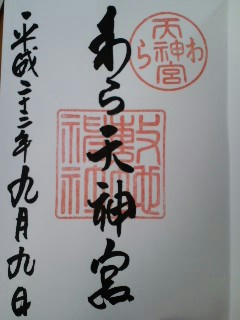 わら天神宮
わら天神宮
敷地神社
平成二十二年九月九日